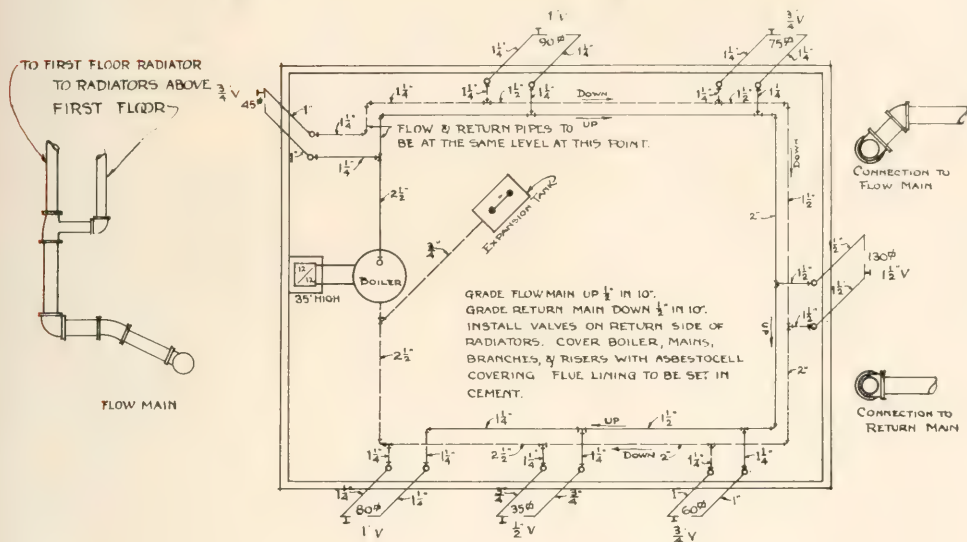 TO FIRST FLOOR RADIATOR
TO RADIATORS ABOVE
FIRST FLOOR
FLOW MAIN
3/4" V
45⌀
1"
1"
1 1/4"
1 1/4"
1" V
90⌀
1 1/4"
1 1/4"
3/4" V
75⌀
1 1/4"
1 1/4"
1 1/4"
1 1/4"
1 1/2"
1 1/4"
DOWN
1 1/4"
1 1/2"
1 1/4"
UP
FLOW & RETURN PIPES TO
BE AT THE SAME LEVEL AT THIS POINT.
DOWN
2 1/2"
EXPANSION TANK
3/4"
2"
1 1/2"
12/12
35' HIGH
BOILER
1 1/2"
130⌀
1 1/2" V
1 1/2"
1 1/2"
1 1/2"
GRADE FLOW MAIN UP 1/2" IN 10'.
GRADE RETURN MAIN DOWN 1/2" IN 10'.
INSTALL VALVES ON RETURN SIDE OF
RADIATORS. COVER BOILER, MAINS,
BRANCHES, & RISERS WITH ASBESTOCELL
COVERING FLUE LINING TO BE SET IN
CEMENT.
UP
2 1/2"
2"
1 1/4"
UP
1 1/2"
1 1/4"
1 1/4"
2 1/2"
1 1/4"
1 1/4"
DOWN
2"
1 1/4"
1 1/4"
1 1/4"
80⌀
1 1/4"
1" V
3/4"
35⌀
3/4"
1/2" V
1"
60⌀
1"
3/4" V
CONNECTION TO
FLOW MAIN
CONNECTION TO
RETURN MAIN